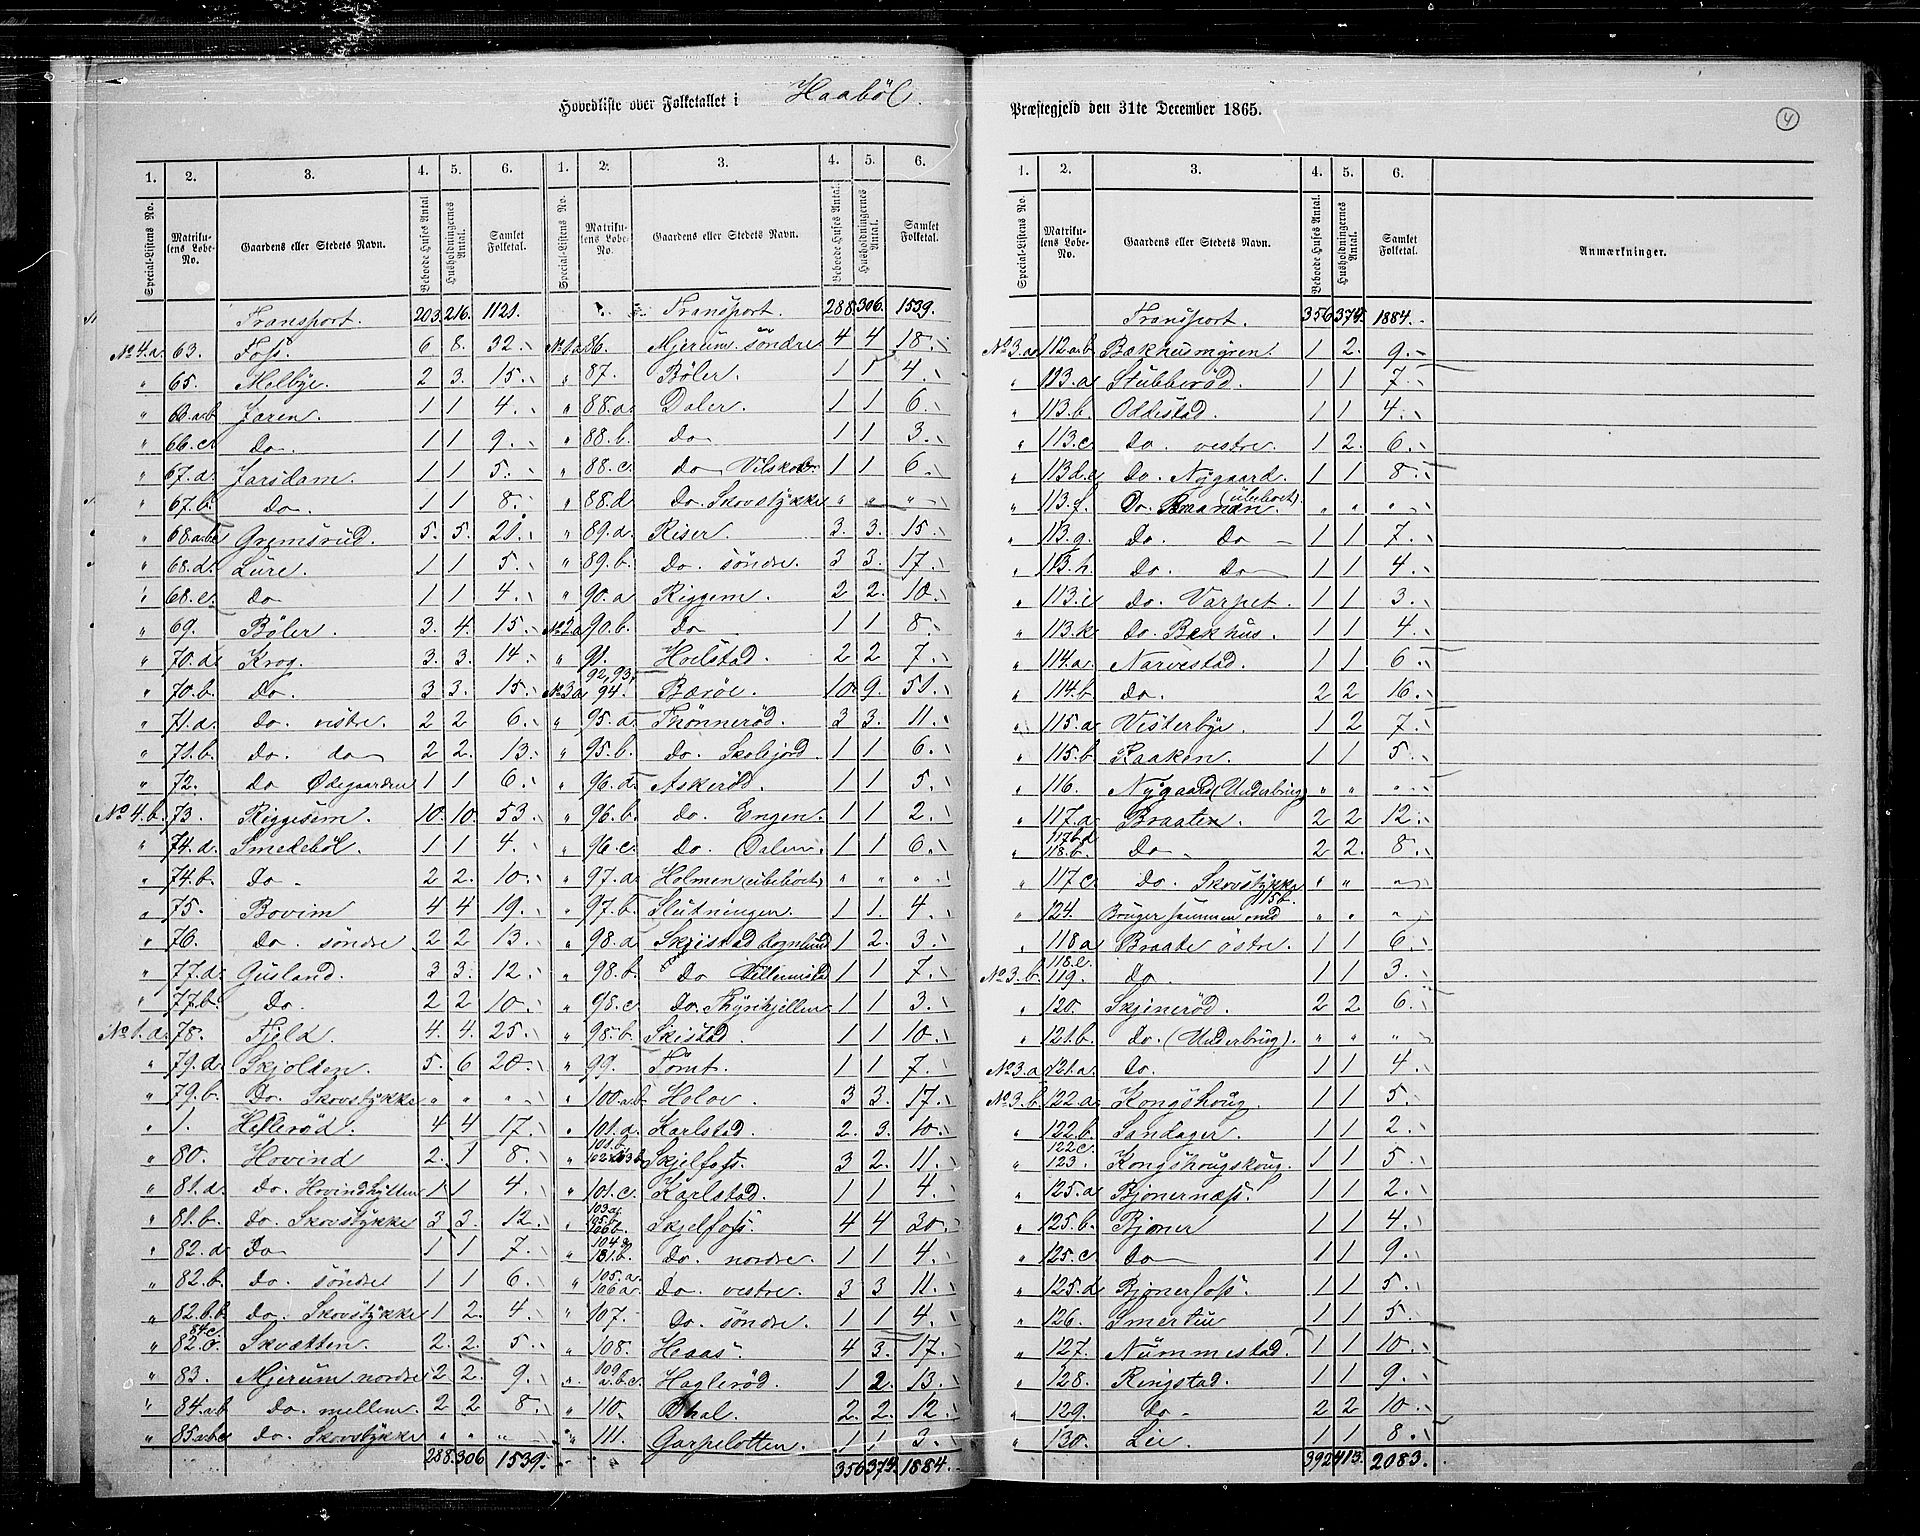 Hovedliste over Folketallet i Haaböl.
1. 2. 3. 4. 5. 6. 1. 2. 3. 4. 5. 6.
Special-Listens No. Matrikulens Løbe-No. Gaardens eller Stedets Navn. Beboede Huses Antal. Husholdningernes Antal. Samlet Folketal. Special-Listens No. Matrikulens Løbe-No. Gaardens eller Stedets Navn. Beboede Huses Antal. Husholdningernes Antal. Samlet Folketal.
Transport. 203. 216. 1121. Transport. 288. 306. 1539.
No 4.a. 63. Foss. 6 8. 32. No 1.a. 86. Mjerum söndre 4 4 18.
" 65. Melbye. 2 3. 15. " 87. Böler. 1 1 4.
" 66.a.b. Jaren. 1 1 4. " 88.a. Daler. 1 1 6.
" 66.c. Do. 1 1 9. " 88.b. Do 1 1 3.
" 67.a. Jarsdam. 1 1 5. " 88.c. Do 1 1 6.
" 67.b. Do. 1 1 8. " 88.d Do. Skovstykke " " "
" 68.a.b.c Gremsrud. 5. 5. 21. " 89.a. Riser. 3. 3. 15.
" 68.d. Lure. 1 1 5. " 89.b. Do. söndre. 3 3. 17.
" 68.e. Do 1 1 4. " 90.a Riggem. 2 2. 10.
" 69. Böler. 3. 4. 15. No 2.a 90.b. Do 1 1 8.
" 70.a. Krog. 3. 3. 14. " 91. Hoelstad. 2 2 7.
" 70.b. Do. 3 3. 15. No 3.a 92, 93, 94. Beröe. 10. 9. 51.
" 71.a. Do. vestre. 2 2 6. " 95.a. Trönneröd. 3 3. 11.
" 71.b. Do. do 2 2. 13. " 95.b. Do. Skolejord 1 1 6.
" 72. Do Ödegaarden 1 1 6. " 96.a. Askeröd. 1 1 5.
No 4.b. 73. Riggesem. 10. 10. 53. " 96.b. Do. Engen. 1 1 2.
" 74.a. Smedeböl. 1 1 4. " 96.c. Do. Dalen. 1 1 6.
" 74.b. Do. 2 2. 10. " 97.a. Holmen (ubeboet) " " "
" 75. Bovim 4 4 19. " 97.b. Slutningen. 1 1. 4.
" 76. Do. söndre 2 2 13. " 98.a Skjistad Rognlund 1 2. 3.
" 77.a. Gusland. 3 3. 12. " 98.b. Do 1 1 7.
" 77.b. Do. 2 2 10. " 98.c. Do. Thyrihjellen 1 1 3.
No 1.a. 78. Fjeld. 4. 4. 25. " 98.b. Skistad. 1 1 10.
" 79.a. Skjolden. 5. 6 20. " 99. Tomt. 1 1 7.
" 79.b. Do. Skovstykke " " " " 100.a.b Holve. 3 3. 17.
" 1. Helleröd. 4 4 17. " 101.a. Karlstad. 2. 3. 10.
" 80. Hovind 2. 1 8. " 101.b. Skjelfoss. 3 2. 11.
" 81.a. Do. Hovindhytten 1 1 4. " 101.c. Karlstad. 1 1 4.
" 81.b. Do. Skovstykke 3 3. 12. " 103.a. 105.b. 106.b. Skjelfoss. 4 4 30.
" 82.a Do 1 1 7. " 104. 131.b. Do. nordre. 1 1 4.
" 82.b. Do. söndre 1 1 6. " 105.a. 106.a. Do. vestre. 3 3 11.
" 82.b.b. Do. Skovstykke 1 2. 4. " 107. Do. söndre. 1 1 4.
" 84.c. 82.c. Skvætten. 2. 2. 5. " 108. Haas. 4 3. 17.
" 83. Mjerum nordre 2. 2. 9. " 109 a.b.c. Hagleröd. 1 2. 13.
" 84.a.b Do. mellem. 2 2 8. " 110. Dhal. 2. 2. 12.
" 85.a.b.c Do. Skovstykke " " " " 111. Garpelotten. 1 1 3.
288. 306 1539. 356 374. 1884.
Præstegjeld den 31te December 1865.
4
1. 2. 3. 4. 5. 6.
Special-Listens No. Matrikulens Løbe-No. Gaardens eller Stedets Navn. Beboede Huses Antal. Husholdningernes Antal. Samlet Folketal. Anmærkninger.
Transport. 356 374. 1884.
No 3.a. 112.a.b. Bækhusmyren. 1 2. 9.
" 113.a. Stubberöd. 1 1 7.
" 113.b. Oddestad. 1 1 4.
" 113.c Do. vestre. 1 2. 6.
" 113.d.e Do. Nygaard. 1 1 8.
" 113.f. Do. (ubeboet). " " "
" 113.g. Do. Do 1 1 7.
" 113.h. Do. Do 1 1 4.
" 113.i Do. Varpet. 1 1 3.
" 113.k. Do. Bækhus. 1 1 4.
" 114.a. Narvestad. 1 1 6.
" 114.b Do. 2 2 16.
" 115.a Vesterbye. 1 2 7.
" 115.b Kaaken. 1 1 5.
" 116. Nygaard (Underbrug) " " "
" 117.a. Braaten. 2 2 12.
" 117.b.d 118.b. Do. 2 2. 8.
" 117.c. Do. Skovstykke " " "
" 124. Bruger sammen med 115b. " " "
" 118.a Braate östre. 1 1 6.
No 3.b. 118.c. 119. Do. 1 1 3.
" 120. Skjeneröd. 2 2 6.
" 121.b. Do. (Underbrug). " " "
No 3.a 121.a. Do. 1 1 4.
No 3.b. 122.a. Kongshoug. 1 1 5.
" 122.b. Sandager. 1 1 2.
" 122.c. 123. Kongshougskoug. 1 1 5.
" 125.a. Bjonernæss. 1 1 2.
" 125.b. Bjoner 1 1 4.
" 125.c. Do 1 1 9.
" 125.d Bjonerfoss. 1 1 5.
" 126. Smertu 1 1 5.
" 127. Nummestad. 1 1 10.
" 128. Ringstad. 1 1 9.
" 129. Do. 2 2 10.
" 130. Lie. 1 1 8.
392 413. 2083.